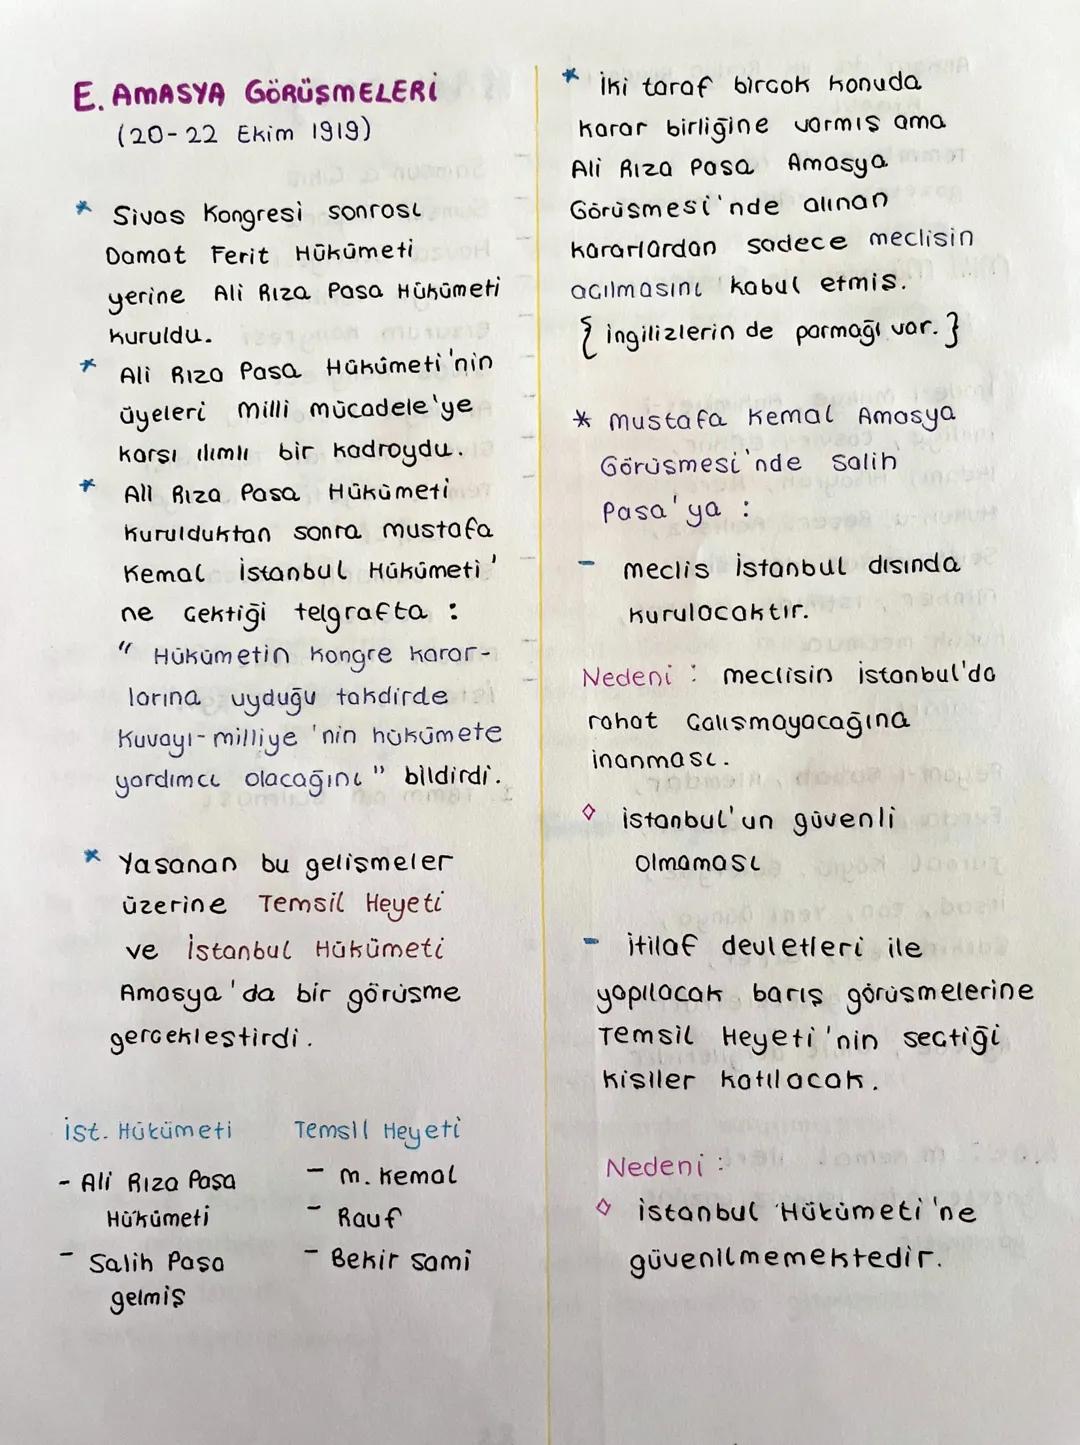 E. AMASYA GÖRÜŞMELERİ
(20-22 Ekim 1919)
* Sivas Kongresi sonrası
Damat Ferit Hükûmeti
yerine Ali Rıza Paşa Hükûmeti
kuruldu.
* Ali Rıza Paşa Hükûmeti'nin
üyeleri Milli mücadele'ye
karşı ılımlı bir kadroydu.
* Ali Rıza Paşa Hükûmeti
kurulduktan sonra mustafa
Kemal İstanbul Hükûmeti'
ne çektiği telgrafta :
" Hükûmetin kongre karar-
larına uyduğu takdirde
Kuvayı-milliye 'nin hükûmete
yardımcı olacağını" bildirdi.
* Yaşanan bu gelişmeler
üzerine Temsil Heyeti
ve İstanbul Hükûmeti
Amasya'da bir görüşme
gerçekleştirdi.
İst. Hükümeti
- Ali Rıza Paşa
Hükûmeti
- Salih Paşa
gelmiş
Temsil Heyeti
- M. Kemal
- Rauf
- Bekir Sami
* İki taraf birçok konuda
karar birliğine varmış ama
Ali Rıza Paşa Amasya
Görüşmesi'nde alınan
kararlardan sadece meclisin
açılmasını kabul etmiş.
{ İngilizlerin de parmağı var. }
* Mustafa Kemal Amasya
Görüşmesi'nde Salih
Paşa'ya :
- meclis İstanbul dışında
kurulacaktır.
Nedeni : meclisin İstanbul'da
rahat çalışmayacağına
inanması.
◇ İstanbul'un güvenli
olmaması
- İtilaf devletleri ile
yapılacak barış görüşmelerine
Temsil Heyeti'nin seçtiği
kişiler katılacak.
Nedeni :
◇ İstanbul Hükûmeti'ne
güvenilmemektedir.